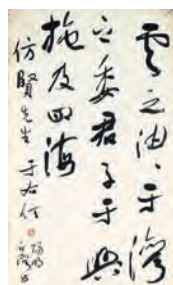 雲之油油于灣
委君子于興
施及四海
仿賢先生 于右任